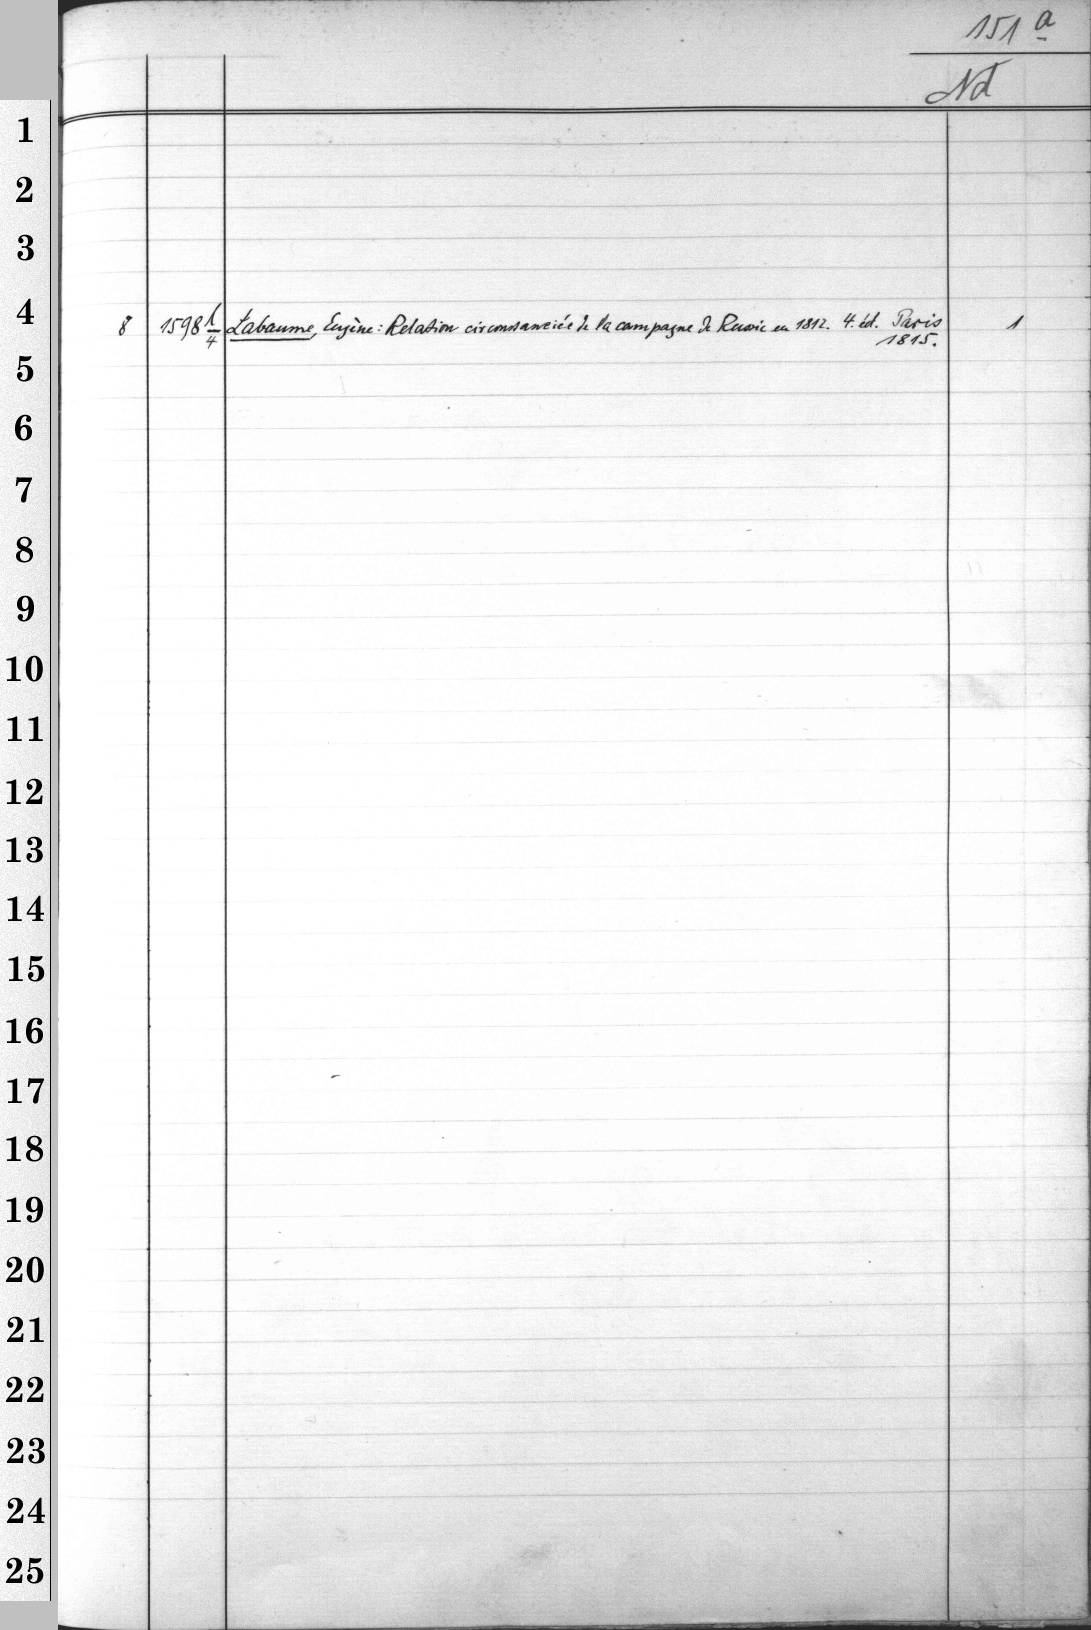 151 a
Nd
1
2
3
4
8 1598 1/4 Labaume, Eugène: Relation circonstanciée de la campagne de Russie en 1812. 4. éd. Paris 1
1815.
5
6
7
8
9
10
11
12
13
14
15
16
17
18
19
20
21
22
23
24
25